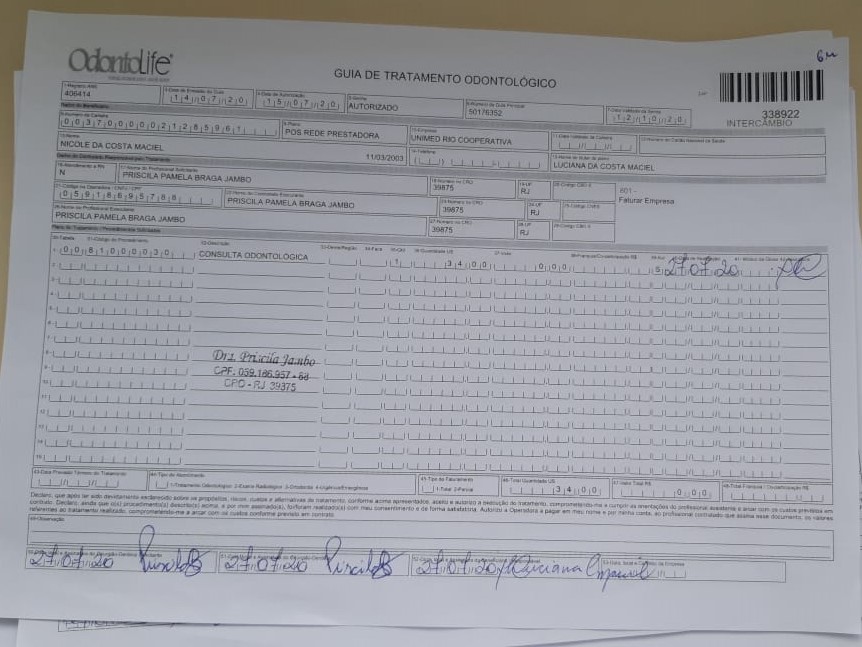 6m
OdontoLife
GUIA DE TRATAMENTO ODONTOLÓGICO
338922
INTERCÂMBIO
1-Registro ANS
406414
3-Data de Emissão da Guia
14/07/20
4-Data de Autorização
15/07/20
5-Senha
AUTORIZADO
6-Número da Guia Principal
50176352
7-Data Validade da Senha
12/10/20
Dados do Beneficiário
8-Número da Carteira
00370000021285961
9-Plano
POS REDE PRESTADORA
10-Empresa
UNIMED RIO COOPERATIVA
11-Data Validade da Carteira
12-Número do Cartão Nacional de Saúde
13-Nome
NICOLE DA COSTA MACIEL
11/03/2003
14-Telefone
15-Nome do titular do plano
LUCIANA DA COSTA MACIEL
Dados do Contratado Responsável pelo Tratamento
16-Atendimento a RN
N
17-Nome do Profissional Solicitante
PRISCILA PAMELA BRAGA JAMBO
18-Número no CRO
39875
19-UF
RJ
20-Código CBO-S
601 -
Faturar Empresa
21-Código na Operadora / CNPJ / CPF
05918695788
22-Nome do Contratado Executante
PRISCILA PAMELA BRAGA JAMBO
23-Número no CRO
39875
24-UF
RJ
25-Código CNES
26-Nome do Profissional Executante
PRISCILA PAMELA BRAGA JAMBO
27-Número no CRO
39875
28-UF
RJ
29-Código CBO-S
Plano de Tratamento / Procedimentos Solicitados
30-Tabela 31-Código do Procedimento 32-Descrição 33-Dente/Região 34-Face 35-Qtd 36-Quantidade US 37-Valor 38-Franquia/Co-participação R$
1- 00 81000030 CONSULTA ODONTOLÓGICA 1 34,00 0,00 S 27 07 20
2-
3-
4-
5-
6-
7-
8-
9-
10-
11-
12-
13-
14-
15-
Dra. Priscila Jambo
CPF. 059.186.957-88
CRO - RJ 39875
43-Data Previsão Término do Tratamento
44-Tipo de Atendimento
1-Tratamento Odontológico 2-Exame Radiológico 3-Ortodontia 4-Urgência/Emergência
45-Tipo de Faturamento
1-Total 2-Parcial
46-Total Quantidade US
34,00
47-Valor Total R$
0,00
48-Total Franquia / Co-participação R$
Declaro, que após ter sido devidamente esclarecido sobre os propósitos, riscos, custos e alternativas de tratamento, conforme acima apresentados, aceito e autorizo a execução do tratamento, comprometendo-me a cumprir as orientações do profissional assistente e arcar com os custos previstos em
contrato. Declaro, ainda que o(s) procedimento(s) descrito(s) acima, e por mim assinado(s), foi/foram realizado(s) com meu consentimento e de forma satisfatória. Autorizo a Operadora a pagar em meu nome e por minha conta, ao profissional contratado que assina esse documento, os valores
referentes ao tratamento realizado, comprometendo-me a arcar com os custos conforme previsto em contrato.
49-Observação
27/07/20
27/07/20
27/07/20 Luciana C Maciel
53-Data, local e Carimbo da Empresa